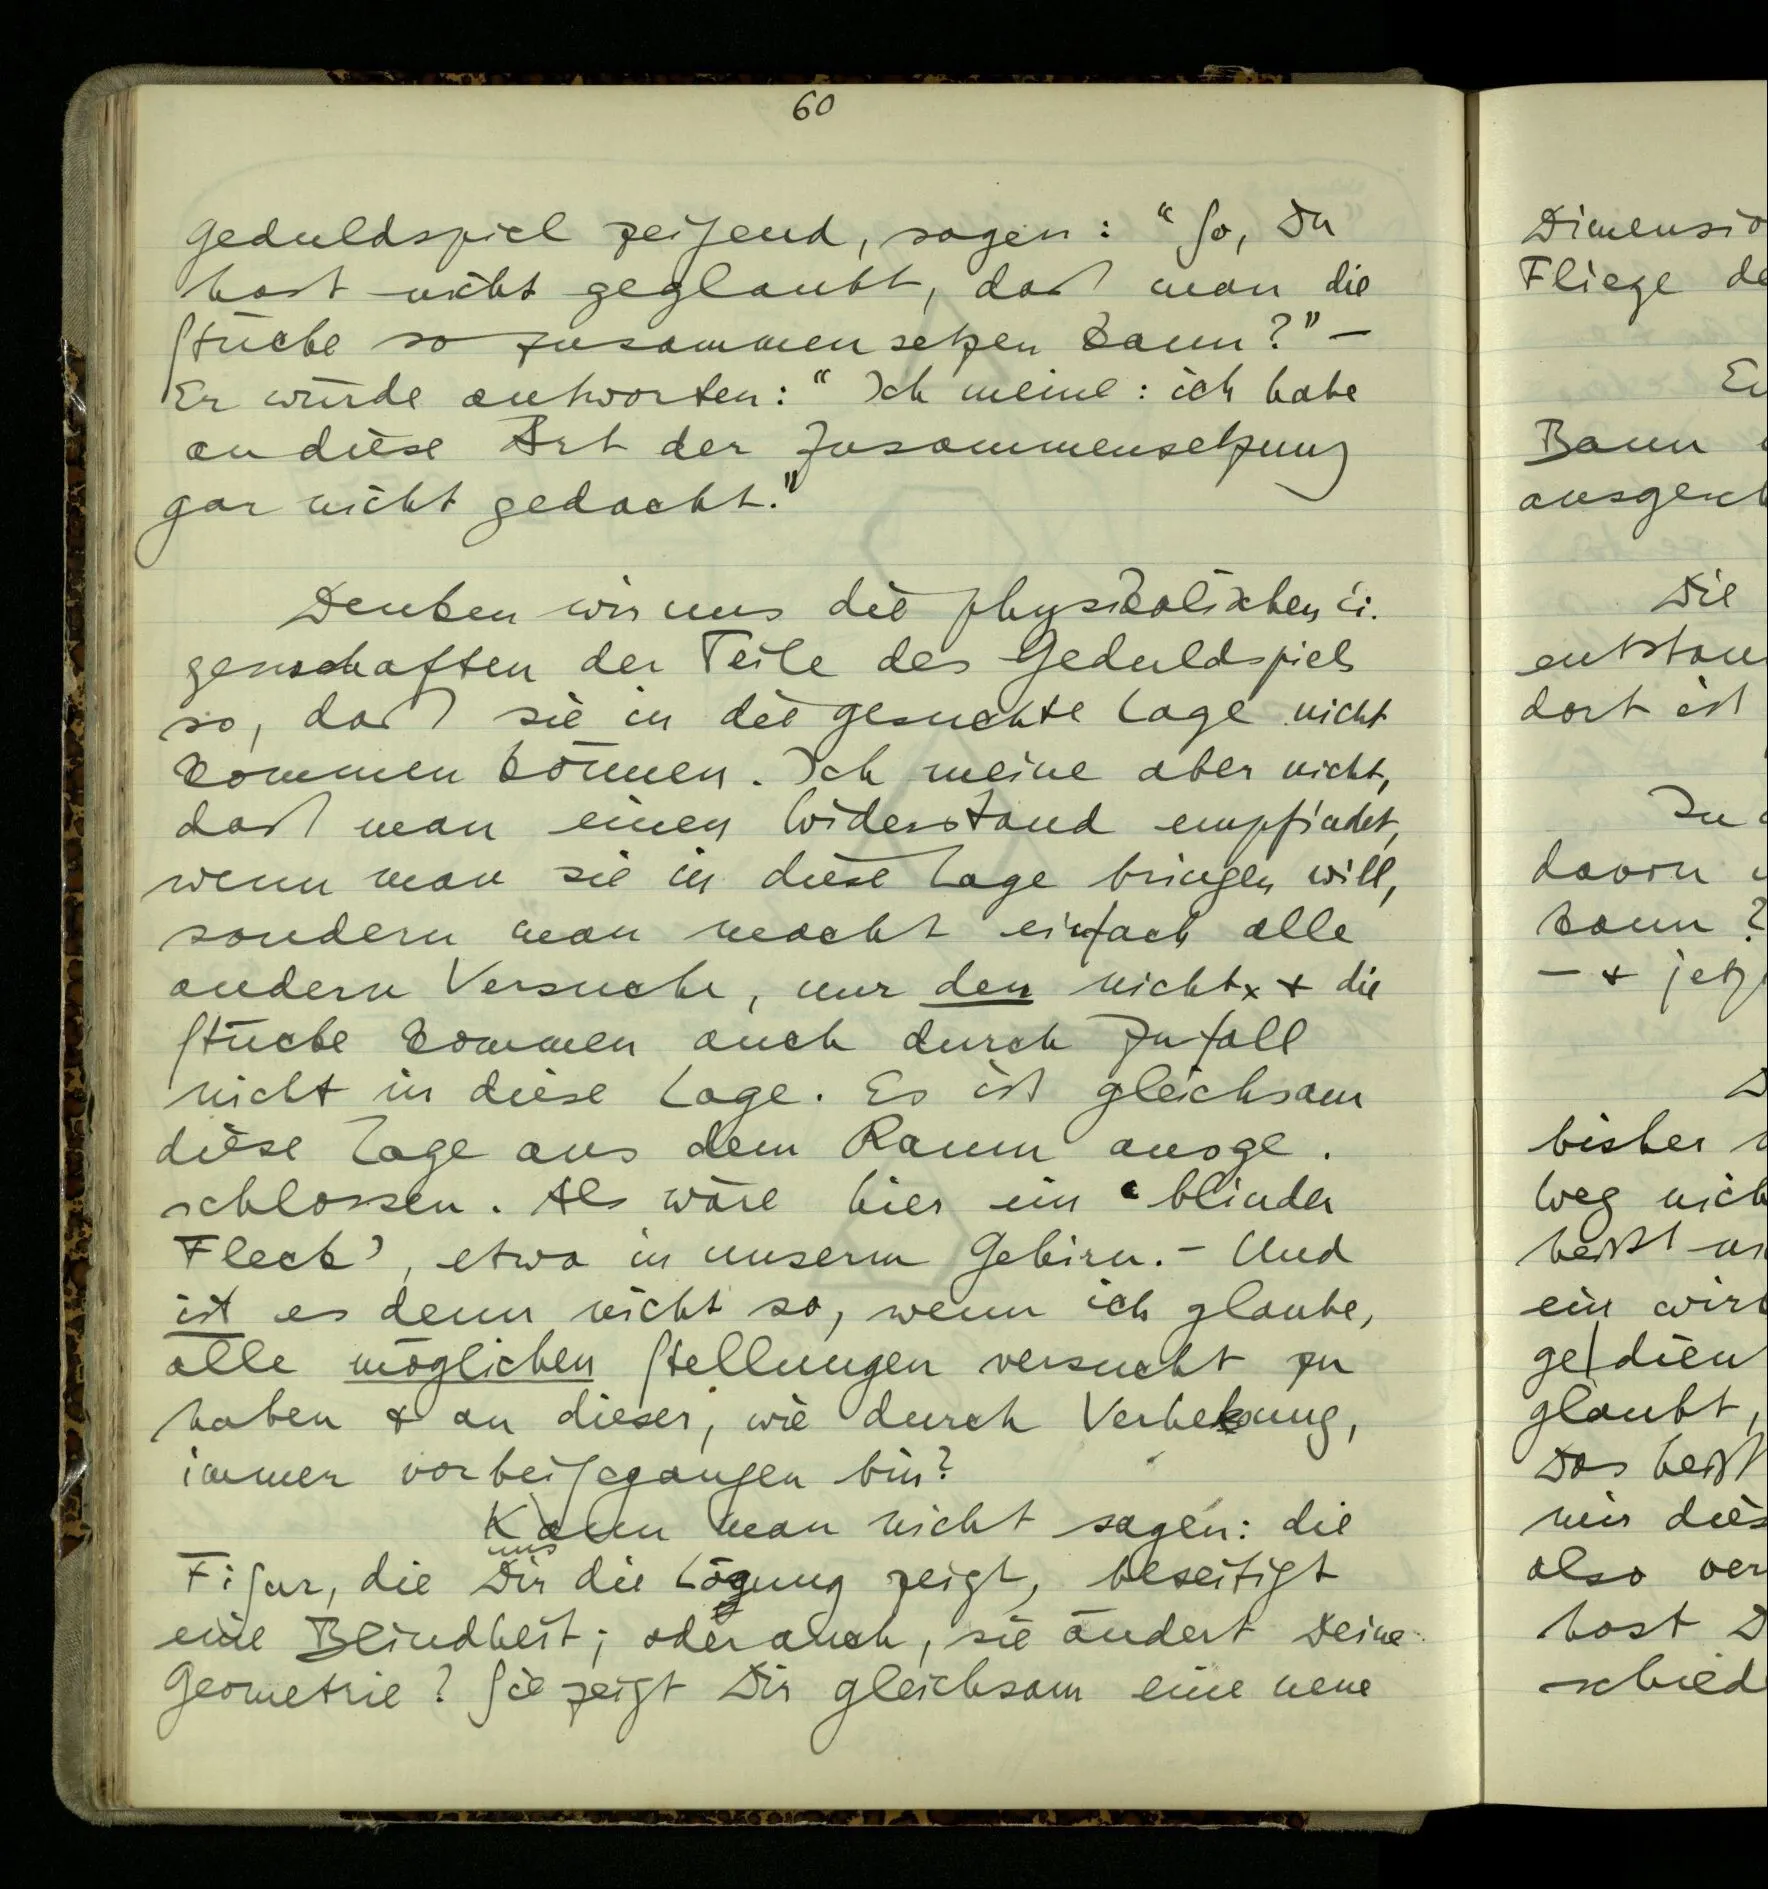 60
Geduldspiel zeigend, sagen: “So, Du
hast nicht geglaubt, daß man die
Stücke so zusammensetzen kann?” –
Er würde antworten: “Ich meine: ich habe
an diese Art der Zusammensetzung
gar nicht gedacht.”
Denken wir uns die physikalischen Ei-
genschaften der Teile des Geduldspiels
so, daß sie in die gesuchte Lage nicht
kommen können. Ich meine aber nicht,
daß man einen Widerstand empfindet,
wenn man sie in diese Lage bringen will,
sondern man macht einfach alle
andern Versuche, nur den nicht, & die
Stücke kommen auch durch Zufall
nicht in diese Lage. Es ist gleichsam
diese Lage aus dem Raum ausge-
schlossen. Als wäre hier ein ‘blinder
Fleck’, etwa in unserm Gehirn. – Und
ist es denn nicht so, wenn ich glaube,
alle möglichen Stellungen versucht zu
haben & an dieser, wie durch Verhexung,
immer vorbeigegangen bin?
Kann man nicht sagen: die
uns
Figur, die Dir die Lösung zeigt, beseitigt
eine Blindheit; oder auch, sie ändert Deine
Geometrie? Sie zeigt Dir gleichsam eine neue
Dimensio
Fliege de
ausgesch
Die
entstan
dort ist
davon
kann?
– & jetz
bisher
Weg nich
heißt
ein wir
ge|dien
glaubt,
Das heißt
mir dies
also ver
hast D
schied